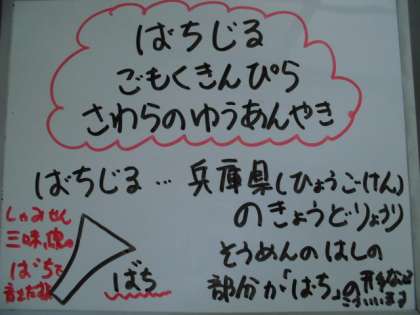 ばちじる
ごもくきんぴら
さわらのゆうあんやき
ばちじる…兵庫県(ひょうごけん)
のきょうどりょうり
そうめんのはしの
部分が「ばち」の形なので
こういいます
しゃみせん
三味線の
ばちで
ばち